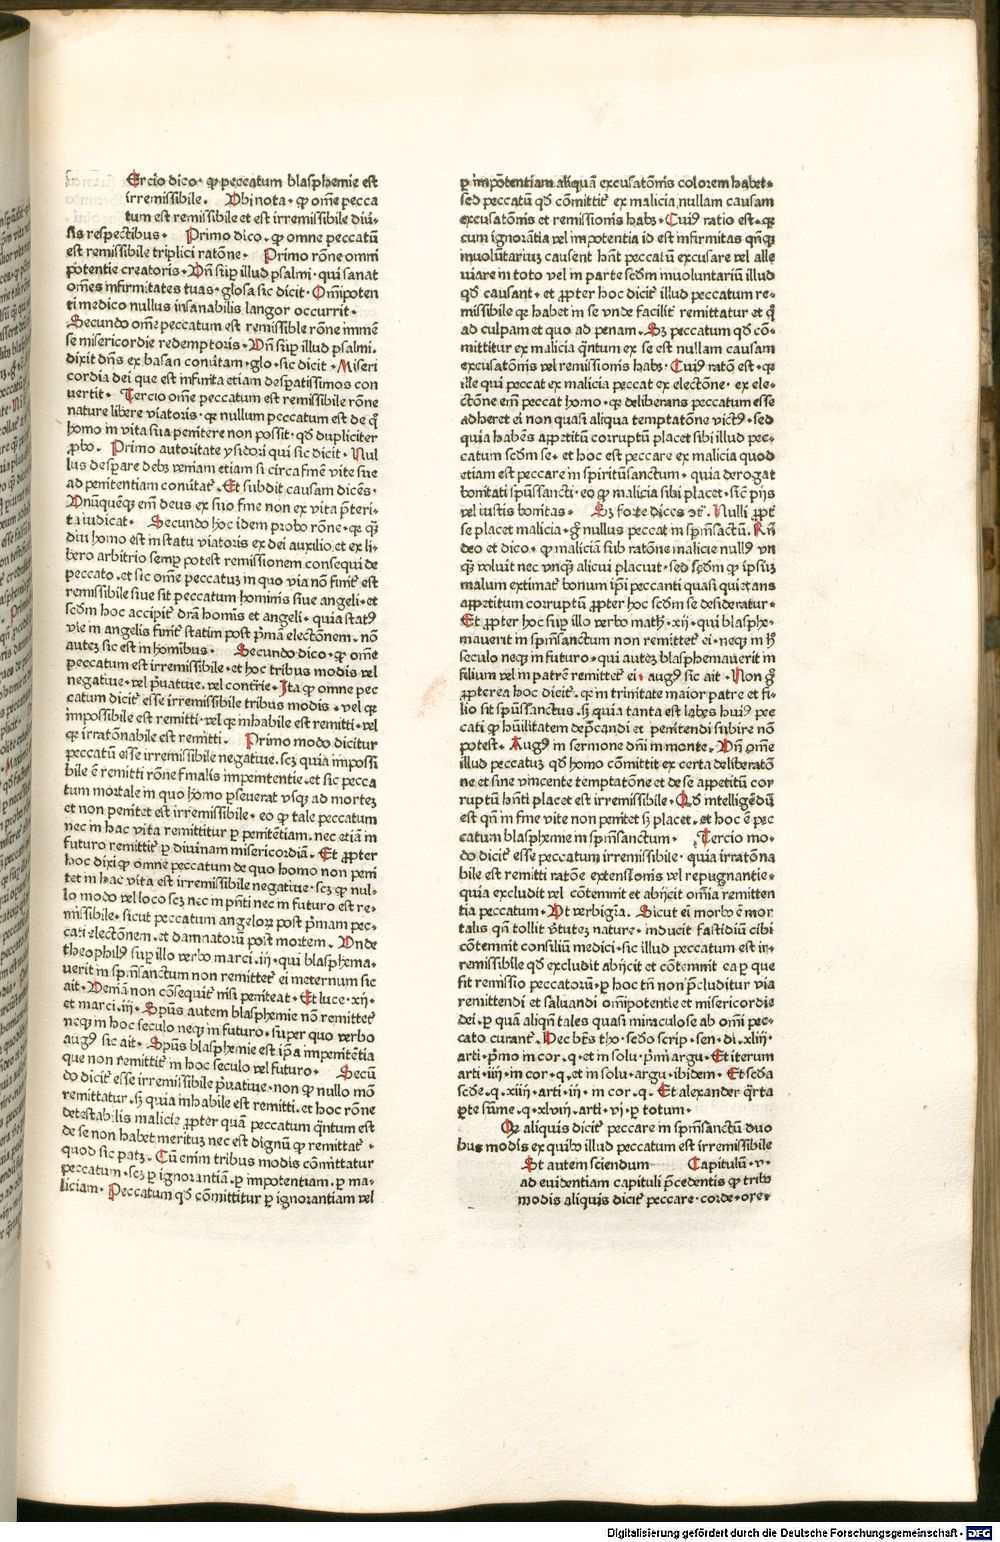 Ercio dico· ꝙ peccatum blasphemie est
irremissibile· Ubi nota· ꝙ om̄e pecca
tum est remissibile et est irremissibile diū·
sis respectibus· Primo dico· ꝙ omne peccatū
est remissibile triplici ratōne· Primo rōne omni
potentie creatoris· Un̄ suꝑ illud psalmi· qui sanat
om̄es infirmitates tuas· glosa sic dicit· Om̄ipoten
ti medico nullus insanabilis langor occurrit·
Secundo om̄e peccatum est remissible rōne immē
se misericordie redemptoris· Un̄ suꝑ illud psalmi·
dixit dn̄s ex basan conūtam· glo· sic dicit· Miseri
cordia dei que est infinita etiam desꝑatissimos con
uertit· Tercio om̄e peccatum est remissibile rōne
nature libere viatoris· qꝛ nullum peccatum est de qͦ
homo in vita sua penitere non possit· qđ dupliciter
ꝓbo· Primo autoritate ysidori qui sic dicit· Nul
lus desꝑare debꝫ veniam etiam si circa finē vite sue
ad penitentiam conūtat᷑· Et subdit causam dicēs·
Unūquēqꝫ em̄ deus ex suo fine non ex vita p̄teri·
ta iudicat· Secundo hoc idem probo rōne· qꝛ qͣ
diu homo est in statu viatoris ex dei auxilio et ex li
bero arbitrio semꝑ potest remissionem consequi de
peccato· et sic om̄e peccatuꝫ in quo via nō finit᷑ est
remissibile siue sit peccatum hominis siue angeli· et
scd̄m hoc accipit᷑ dr̄a hoīs et angeli· quia statꝰ
vie in angelis finit᷑ statim post p̄mā electōnem· nō
auteꝫ sic est in hoībus· Secundo dico· ꝙ om̄e
peccatum est irremissibile· et hoc tribus modis vel
negatiue· vel p̄uatiue· vel contr̄ie· Ita ꝙ omne pec
catum dicit᷑ esse irremissibile tribus modis· vel qꝛ
impossibile est remitti· vel qꝛ inhabile est remitti· vel
qꝛ irratōnabile est remitti· Primo modo dicitur
peccatū esse irremissibile negatiue· scꝫ quia impossi
bile ē remitti rōne finalis impenitentie· et sic pecca
tum mortale in quo homo ꝑseuerat vsqꝫ ad morteꝫ
et non penitet est irremissibile· eo ꝙ tale peccatum
nec in hac vita remittitur ꝑ penitētiam· nec etiā in
futuro remittit᷑ ꝑ diuinam misericordiā· Et ꝓpter
hoc dixi ꝙ omne peccatum de quo homo non peni
tet in hac vita est irremissibile negatiue· scꝫ ꝙ nul·
lo modo vel loco scꝫ nec in p̄nti nec in futuro est re·
missibile· sicut peccatum angeloꝝ post p̄mam pec·
cati electōnem· et damnatorū post mortem· Unde
theophilꝰ suꝑ illo verbo marci· iij· qui blasphema·
uerit in sp̄m̄sanctum non remittet᷑ ei ineternum sic
ait· Veniā non cōsequit᷑ nisi peniteat· Et luce· xij·
et marci· iij· Spūs autem blasphemie nō remittet᷑
neqꝫ in hoc seculo neqꝫ in futuro· super quo verbo
augꝰ sic ait· Spūs blasphemie est ip̄a impenitētia
que non remittit᷑ in hoc seculo vel futuro· Secū
do dicit᷑ esse irremissibile p̄uatiue· non ꝙ nullo mō
remittatur· sꝫ quia inhabile est remitti· et hoc rōne
detestabilis malicie ꝓpter quā peccatum qͣntum est
de se non habet merituꝫ nec est dignū ꝙ remittat᷑·
quod sic patꝫ· Cū enim tribus modis cōmittatur
peccatum· scꝫ ꝑ ignorantiā· ꝑ impotentiam· ꝑ ma·
liciam· Peccatum qđ cōmittitur ꝑ ignorantiam vel
ꝑ impōtentiam aliquā excusatōnis colorem habet·
sed peccatū qđ cōmittit᷑ ex malicia nullam causam
excusatōnis et remissionis habꝫ· Cuiꝰ ratio est· qꝛ
cum ignorātia vel impotentia id est infirmitas qn̄qꝫ
inuolūtariuꝫ causent hn̄t peccatū excusare vel alle
uiare in toto vel in parte scd̄m inuoluntariū illud
qđ causant· et ꝓpter hoc dicit᷑ illud peccatum re·
missibile qꝛ habet in se vnde facilit᷑ remittatur et qͦ
ad culpam et quo ad penam· Sꝫ peccatum qđ cō·
mittitur ex malicia qͣntum ex se est nullam causam
excusatōnis vel remissionis habꝫ· Cuiꝰ ratō est· qꝛ
ille qui peccat ex malicia peccat ex electōne· ex ele·
ctōne em̄ peccat homo· qꝛ deliberans peccatum esse
adheret ei non quasi aliqua temptatōne victꝰ· sed
quia habēs appetitū corruptū placet sibi illud pec·
catum scd̄m se· et hoc est peccare ex malicia quod
etiam est peccare in spiritūsanctum· quia derogat
bonitati spūssancti· eo ꝙ malicia sibi placet· sicͣ pijs
vel iustis bonitas· Sꝫ forte dices ↄͣ· Nulli ꝓpt᷑
se placet malicia· gͦ nullus peccat in sp̄m̄sactū· Rn̄
deo et dico· ꝙ maliciā sub ratōne malicie nullꝰ vn
qͣ voluit nec vnqͣ alicui placuit· sed scd̄m ꝙ ipsuꝫ
malum extimat᷑ bonum ip̄i peccanti quasi quietans
appetitum corruptū ꝓpter hoc scd̄m se desideratur·
Et ꝓpter hoc suꝑ illo verbo math· xij· qui blasphe·
mauerit in sp̄m̄sanctum non remittet᷑ ei· neqꝫ in hͦ
seculo neqꝫ in futuro· qui auteꝫ blasphemauerit in
filium vel in patrē remittet᷑ ei· augꝰ sic ait· Non gͦ
ꝓpterea hoc dicit᷑· qꝛ in trinitate maior patre et fi·
lio sit spūssanctus· sꝫ quia tanta est labes huiꝰ pec
cati ꝙ hūilitatem dep̄candi et penitendi subire nō
potest· Augꝰ in sermone dn̄i in monte· Un̄ om̄e
illud peccatuꝫ qđ homo cōmittit ex certa deliberatō
ne et sine vincente temptatōne et de se appetitū cor
ruptū hn̄ti placet est irremissibile· Qđ intelligēdū
est qn̄ in fine vite non penitet sꝫ placet· et hoc ē pec
catum blasphemie in sp̄m̄sanctum· Tercio mo·
do dicit᷑ esse peccatum irremissibile· quia irratōna
bile est remitti ratōne extensionis vel repugnantie·
quia excludit vel cōtemnit et abijcit om̄ia remitten
tia peccatum· Ut verbigr̄a· Sicut ei morbꝰ ē mor
talis qn̄ tollit v̄tuteꝫ nature· inducit fastidiū cibi
cōtemnit consiliū medici· sic illud peccatum est ir·
remissibile qđ excludit abijcit et cōtemnit ea ꝑ que
fit remissio peccatorū· ꝑ hoc tn̄ non p̄cluditur via
remittendi et saluandi om̄ipotentie et misericordie
dei· ꝑ quā aliqn̄ tales quasi miraculose ab om̄i pec·
cato curant᷑· Hec btūs tho· scđo scrip· sen· di· xliij·
arti· p̄mo in cor· q· et in solu· p̄mi argu· Et iterum
arti· iiij· in cor· q· et in solu· argu· ibidem· Et scđa
scđe· q· xiiij· arti· iij· in cor· q· Et alexander qͣrta
ꝑte sūme· q· xlviij· arti· vj· ꝑ totum·
Qꝛ aliquis dicit᷑ peccare in sp̄m̄sanctū duo
bus modis ex quibꝰ illud peccatum est irremissibile
St autem sciendum Capitulū· v·
ad euidentiam capituli p̄cedentis ꝙ tribꝰ
modis aliquis dicit᷑ peccare· corde· ore·
Digitalisierung gefördert durch die Deutsche Forschungsgemeinschaft - DFG